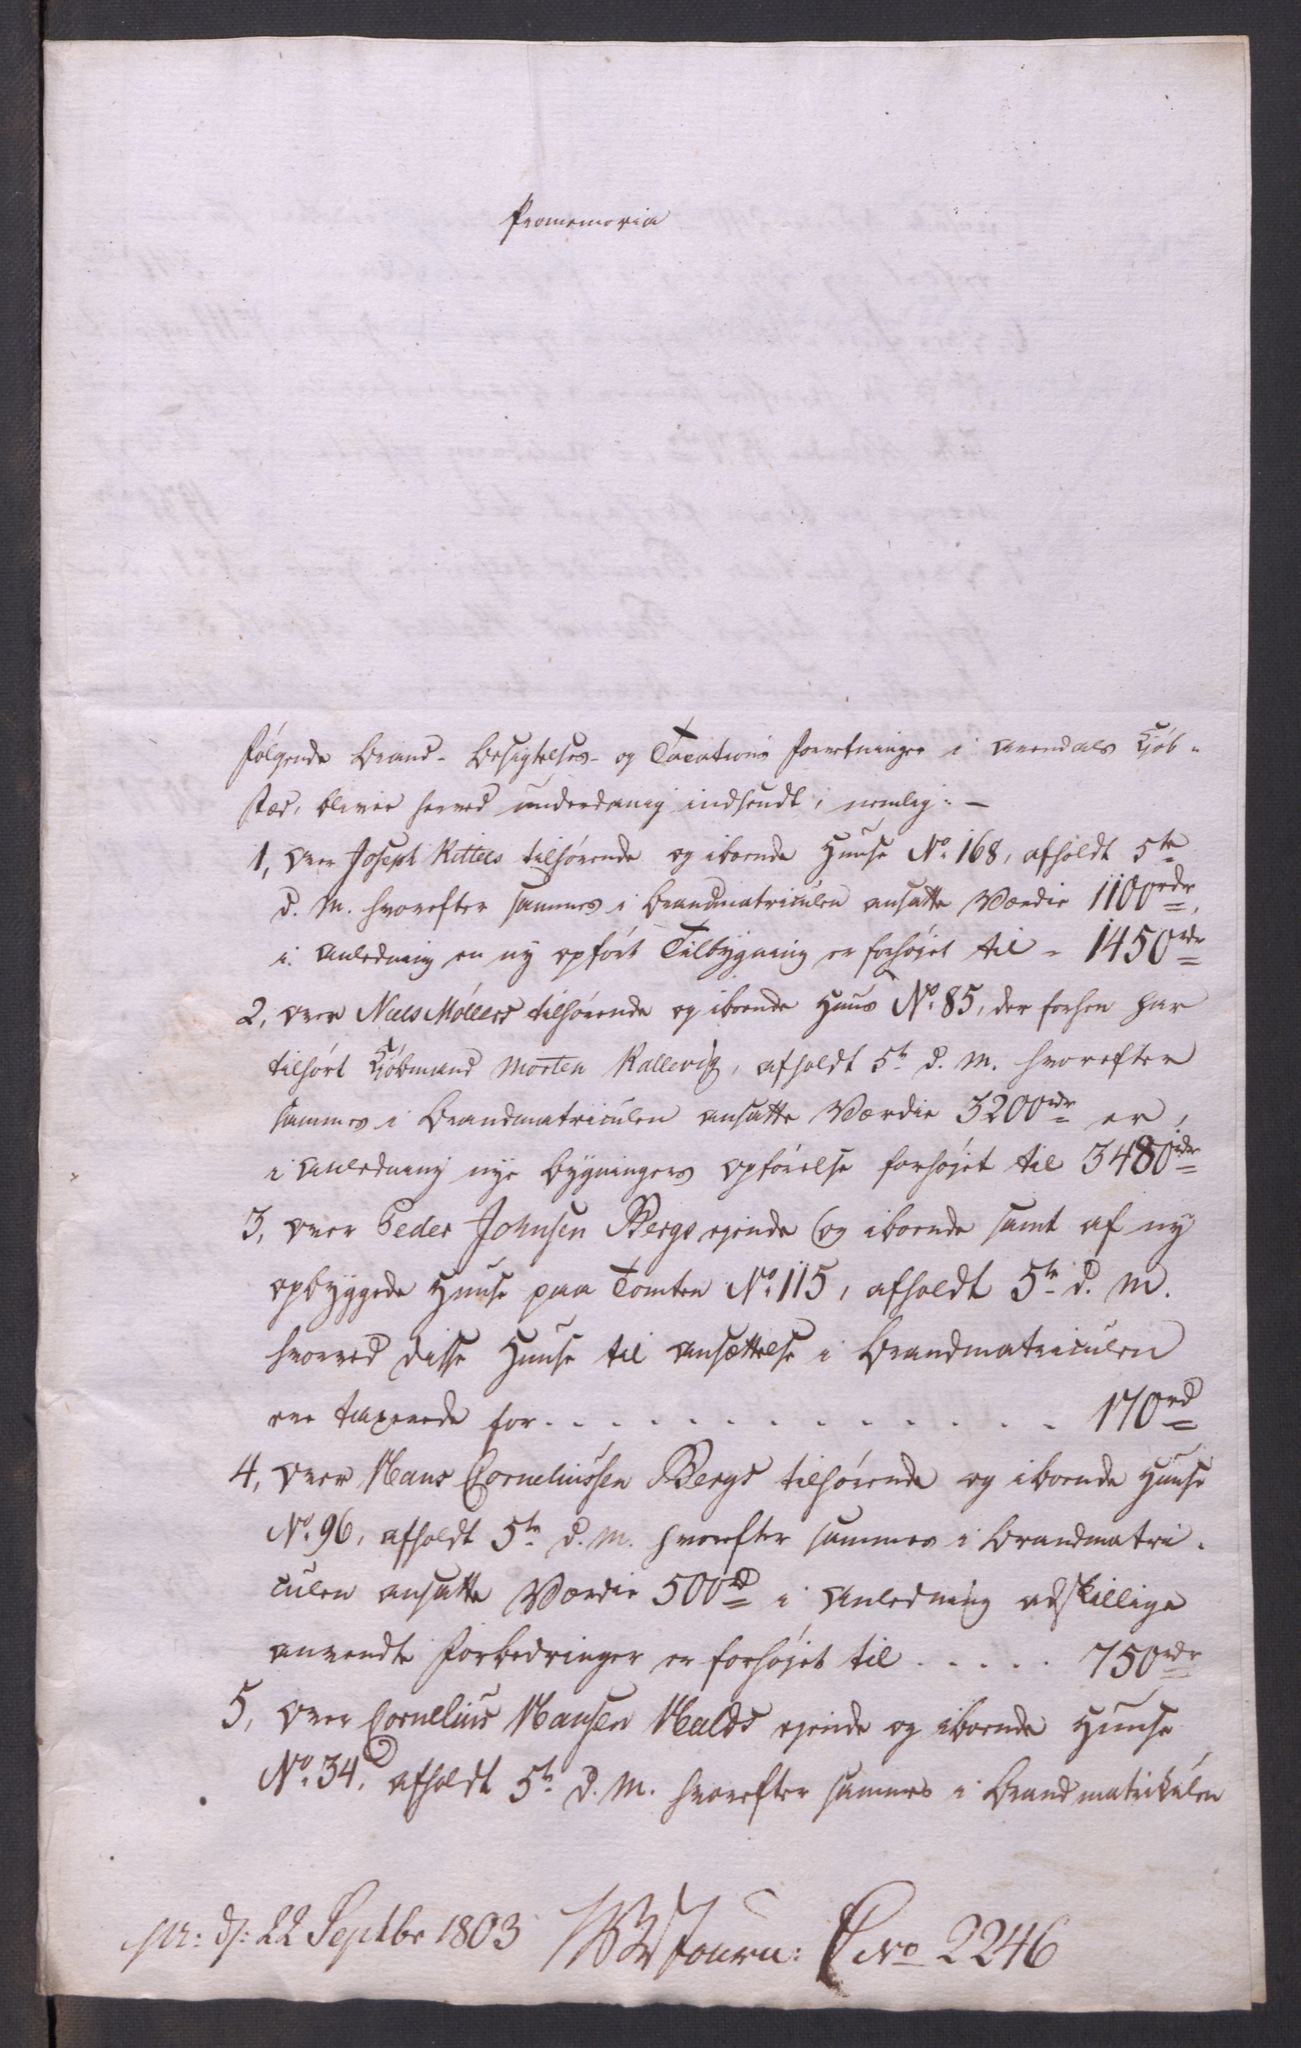 Promemoria
Følgende Brand- Besigtelses- og Taxations Forretninger i Arendals Kjöb-
stæd, bliver herved underdanig indsendt, nemlig: —
1, Over Joseph Kittels tilhörende og iboende Huuse No. 168, afholdt 5te
d. M. hvorefter sammes i Brandmatriculen ansatte Værdie 1100rdr,
i Anledning en ny opført Tilbygning er forhøjet til - 1450rdr
2, Over Niels Møllers tilhørende og iboende Huus No. 85, der forhen har
tilhørt Kjöbmand Morten Kallevig, afholdt 5te d. M. hvorefter
sammes i Brandmatriculen ansatte Værdie 3200rdr er,
i Anledning nye Bygningers Opförelse forhöjet til 3480rdr
3, Over Peder Johnsen Bergs ejende og iboende samt af ny
opbyggede Huuse paa Tomten No. 115, afholdt 5te d. M.
hvorved disse Huuse til Ansættelse i Brandmatriculen
ere taxerede for . . . . . . . . . . . . . . 170rd
4, Over Hans Corneliussen Bergs tilhörende og iboende Huuse
No. 96, afholdt 5te d. M. hvorefter sammes i Brandmatri-
culen ansatte Værdie 500rd i Anledning adskillige
anvendte Forbedringer er forhøjet til . . . . . 750rdr
5, Over Cornelius Hansen Halds ejende og iboende Huuse
No. 34, afholdt 5te d. M. hvorefter sammes i Brandmatrikulen
pr: d: 22 Septbr 1803 Journ: No 2246